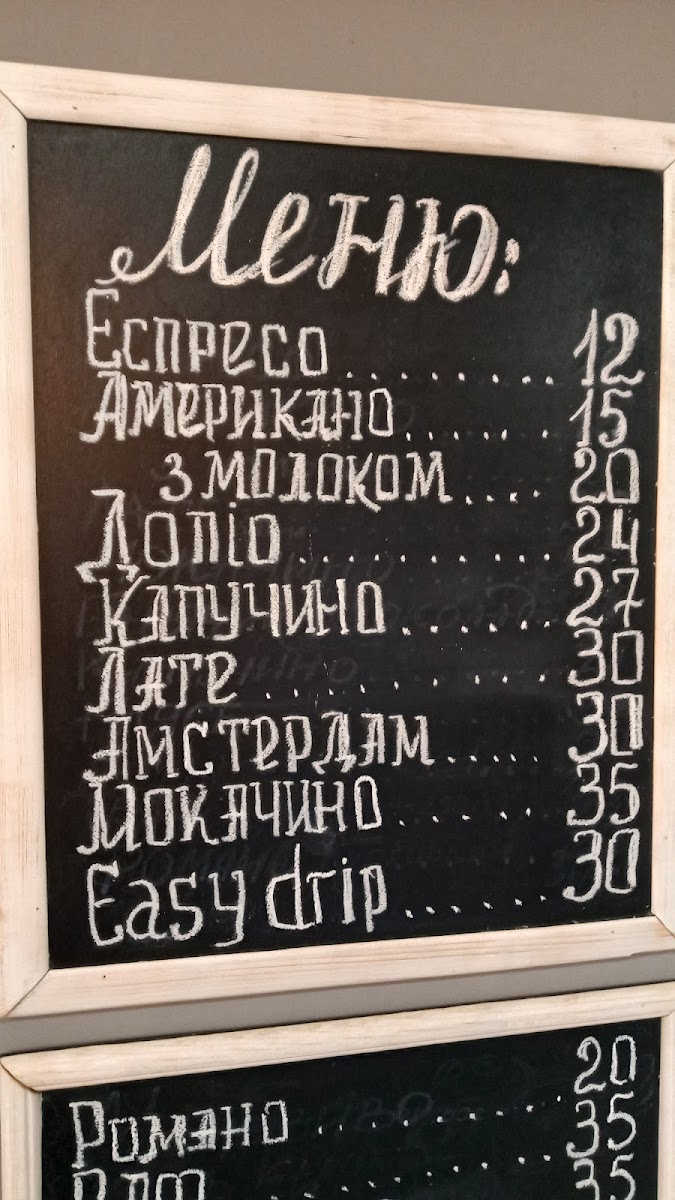 Меню:
Еспресо ........ 12
Американо ...... 15
з молоком .... 20
Допіо .......... 24
Капучино ...... 27
Лате ......... 30
Амстердам ..... 30
Мокачино ...... 35
Easy drip ...... 30
20
Романо ........ 35
35